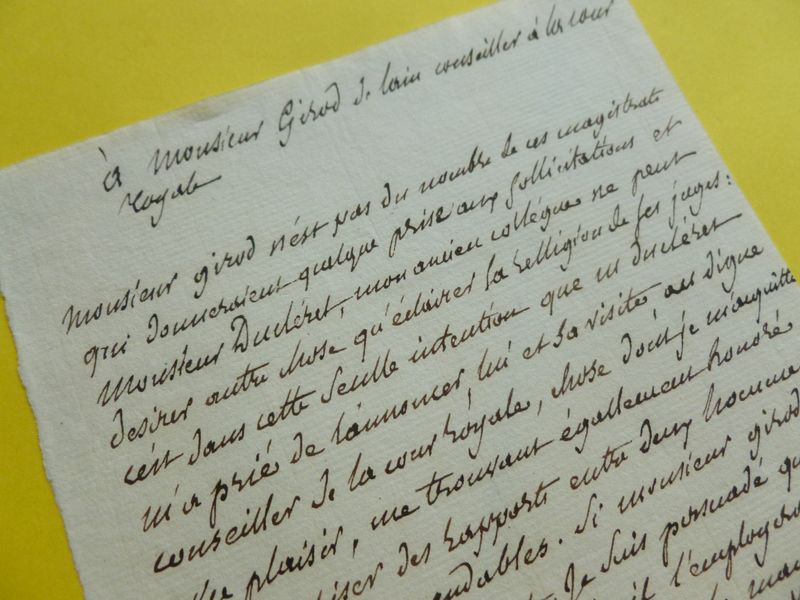 à Monsieur Girod de lain conseiller à la cour
royale
Monsieur girod n'est pas du nombre de ces magistrats
qui donneraient quelque prise aux sollicitations et
Monsieur Ducléret, mon ancien collégue ne peut
desirer autre chose qu'éclairer la relligion de ses juges:
c'est dans cette seulle intention que m ducléret
m'a prié de l'annoncer, lui et sa visite, au digne
conseiller de la cour royale, chose dont je m'acquitte
plaisir, me trouvant égallement honoré
des rapports entre deux hommes
. Si monsieur girod
Je suis persuadé qu
il l'employera